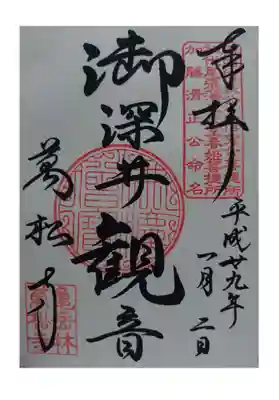 奉拝
加藤清正公命名
平成廿九年
一月二日
御深井観音
萬松寺
亀岳林
萬松寺